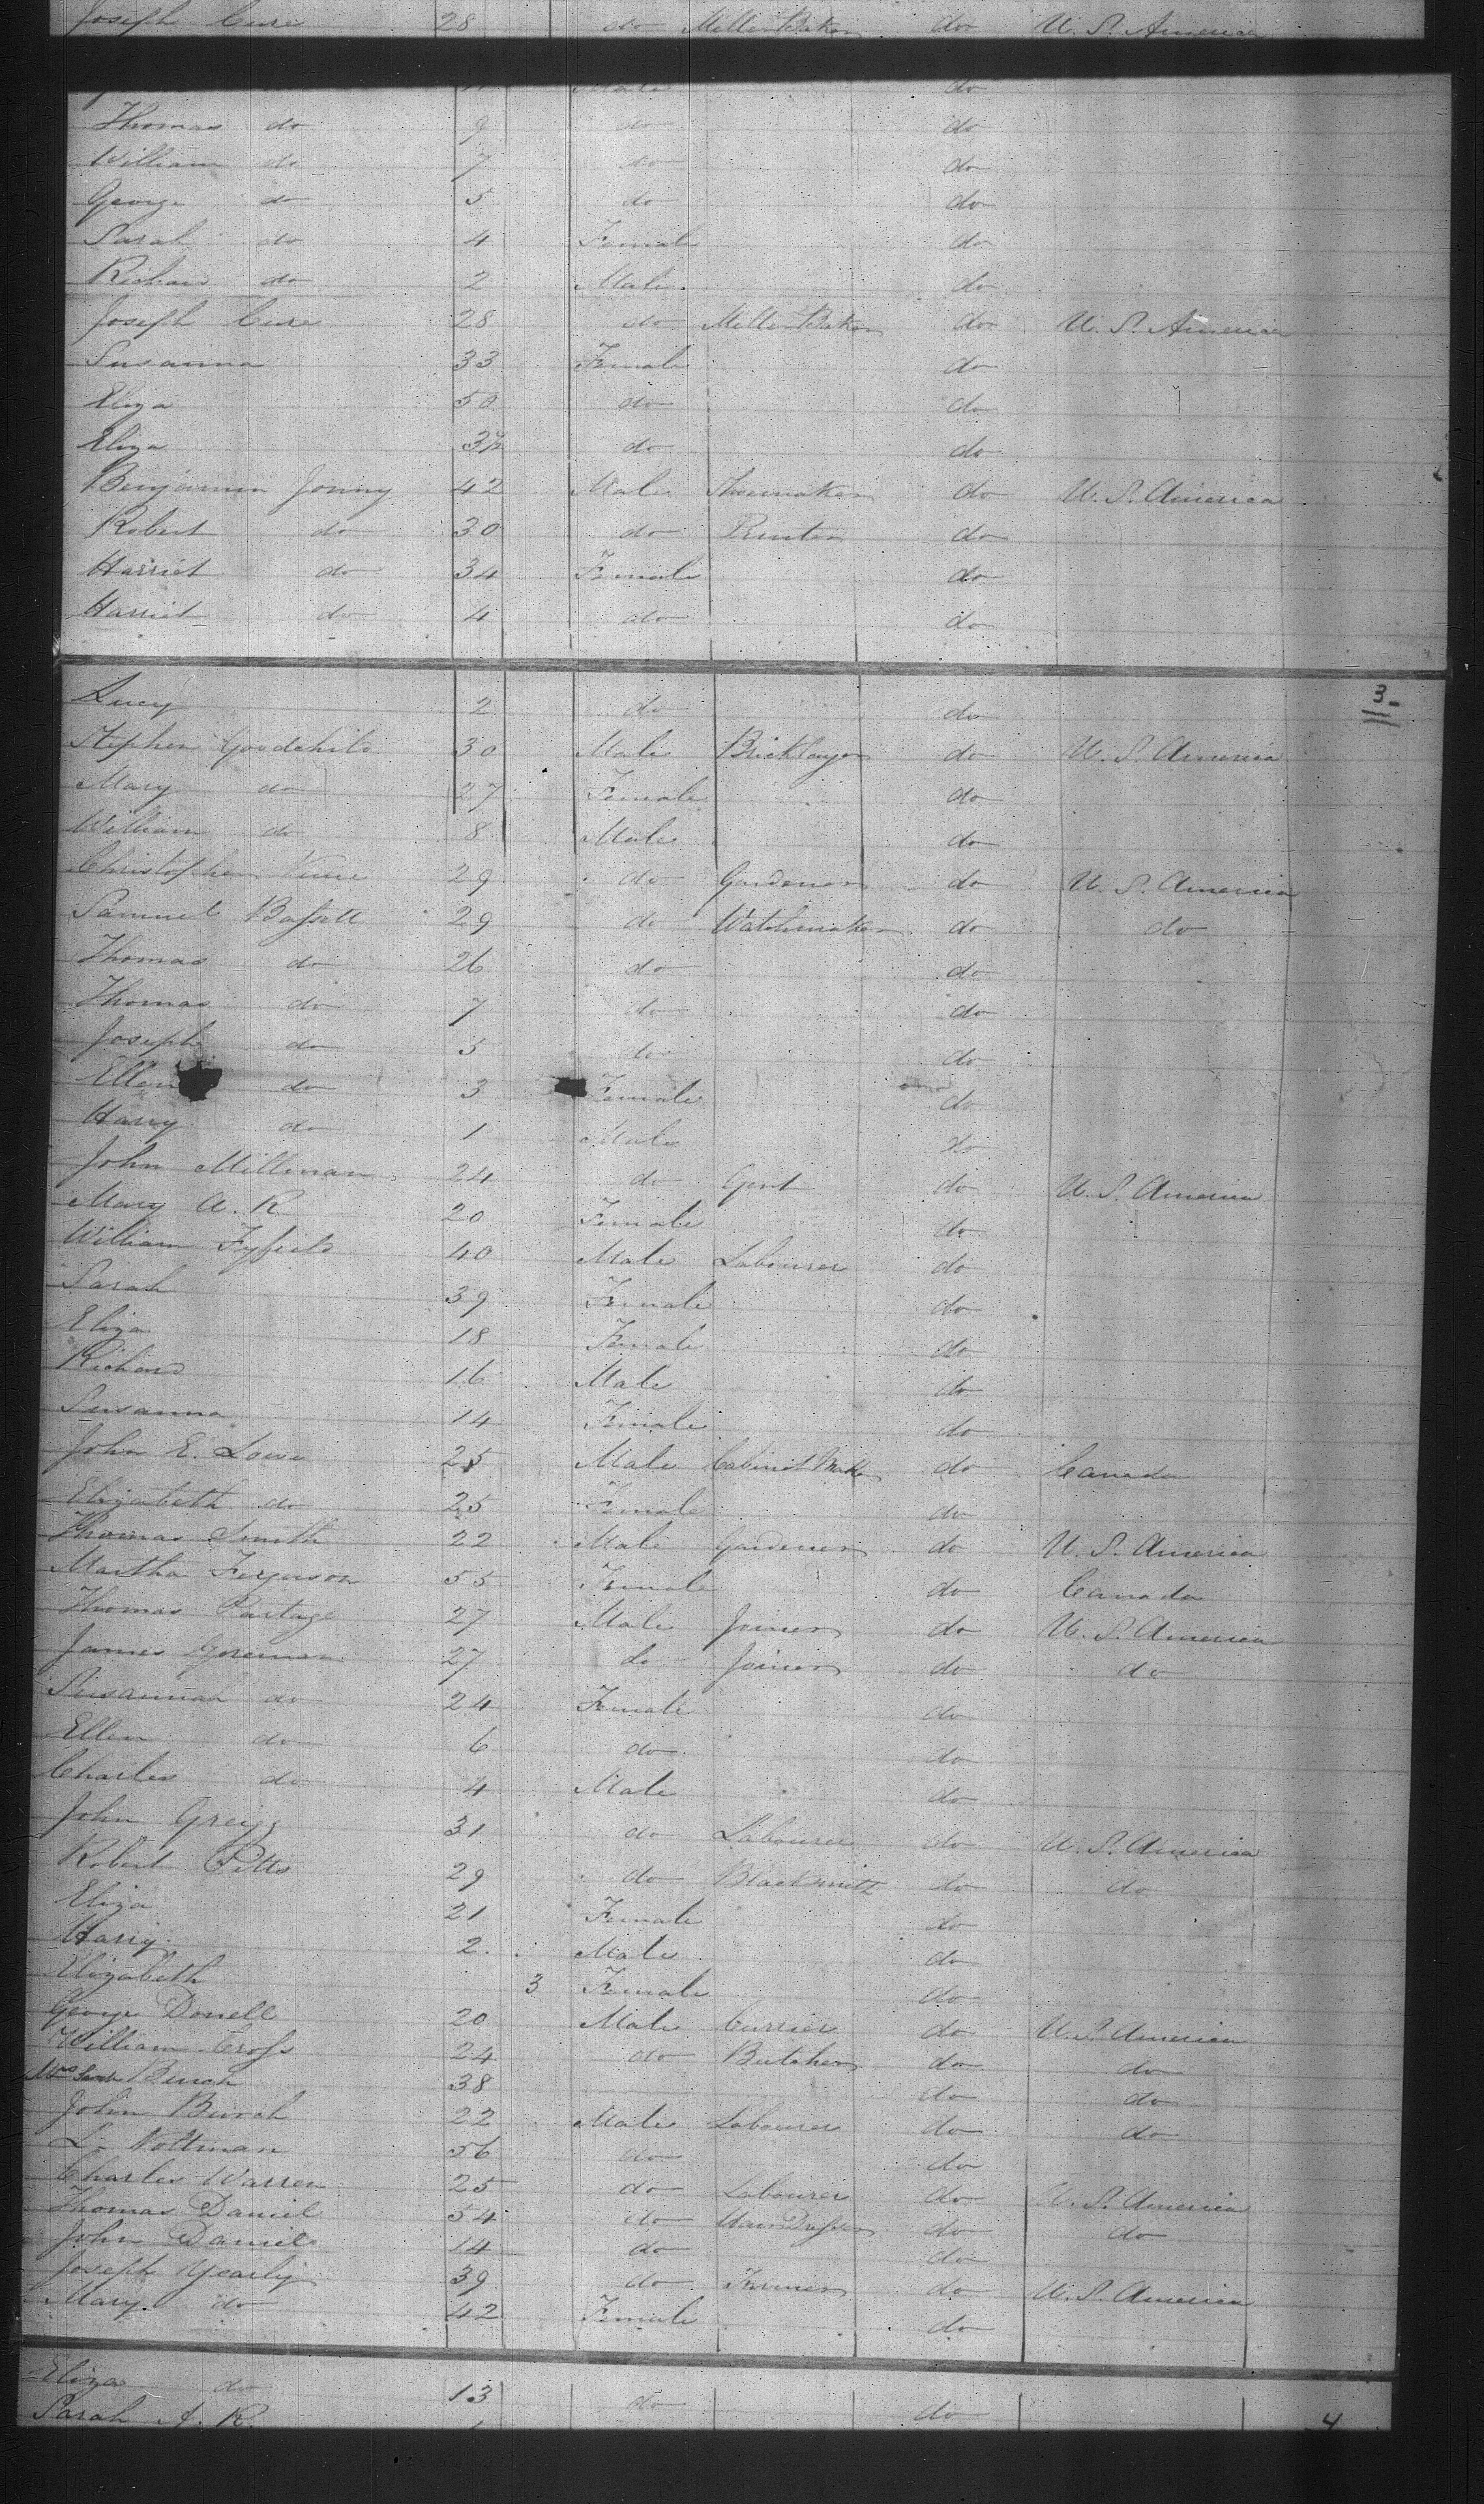 Joseph Cure 28 do Miller Baker do U. S. America
Male do
Thomas do 9 do do
William do 7 do do
George do 5 do do
Sarah do 4 Female do
Richard do 2 Male do
Joseph Cure 28 do Miller Baker do U. S. America
Susanna 33 Female do
Eliza 50 do do
Eliza do do
Benjamin 42 Male Shoemaker do U. S. America
Robert do 30 do do
Harriet do 34 Female do
Harriet do 4 do do
3
Lucy 2 do do
Stephen Goodchild 30 Male Bricklayer do U. S. America
Mary do 27 Female do
William do 8 Male do
Christopher 29 do Gardener do U. S. America
Samuel Bassett 29 do Watchmaker do do
Thomas do 26 do do
Thomas do 7 do do
Joseph do 5 do do
Ellen do 3 Female do
Harry do 1 Male do
John Millman 24 do Gent do U. S. America
Mary A. R 20 Female do
William Fyfield 40 Male Labourer do
Sarah 39 Female do
Eliza 18 Female do
Richard 16 Male do
Susanna 14 Female do
John E. Lowe 25 Male Cabinet Maker do Canada
Elizabeth do 25 Female do
Thomas Smith 22 Male Gardener do U. S. America
Martha Ferguson 55 Female do Canada
Thomas Partage 27 Male Joiner do U. S. America
James Goreman 27 do Joiner do do
Susannah do 24 Female do
Ellen do 6 do do
Charles do 4 Male do
John Greigg 31 do Labourer do U. S. America
Robert Pitts 29 do Blacksmith do do
Eliza 21 Female do
Harry 2 Male do
Elizabeth 3 Female do
George Donell 20 Male Currier do U. S. America
William Cross 24 do Butcher do do
Mrs Burch 38 do do
John Burch 22 Male Labourer do do
L. Noltman 56 do do
Charles Warren 25 do Labourer do U. S. America
Thomas Daniel 54 do Hair Dresser do do
John Daniel 14 do do
Joseph Yearly 39 do Farmer do U. S. America
Mary do 42 Female do
Eliza do 13 do do
Sarah A. R. 4